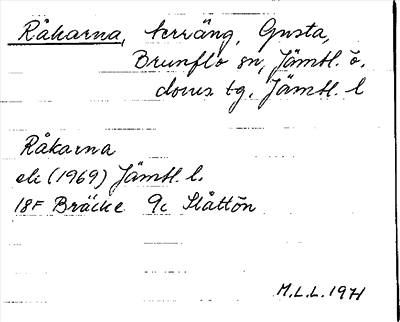 Råkarna, terräng, Gusta,
Brunflo sn, Jämtl. ö.
doms tg, Jämtl. l
Råkarna
ek (1969) Jämtl. l.
18F Bräcke 9c Slåttön
M.L.L. 1971